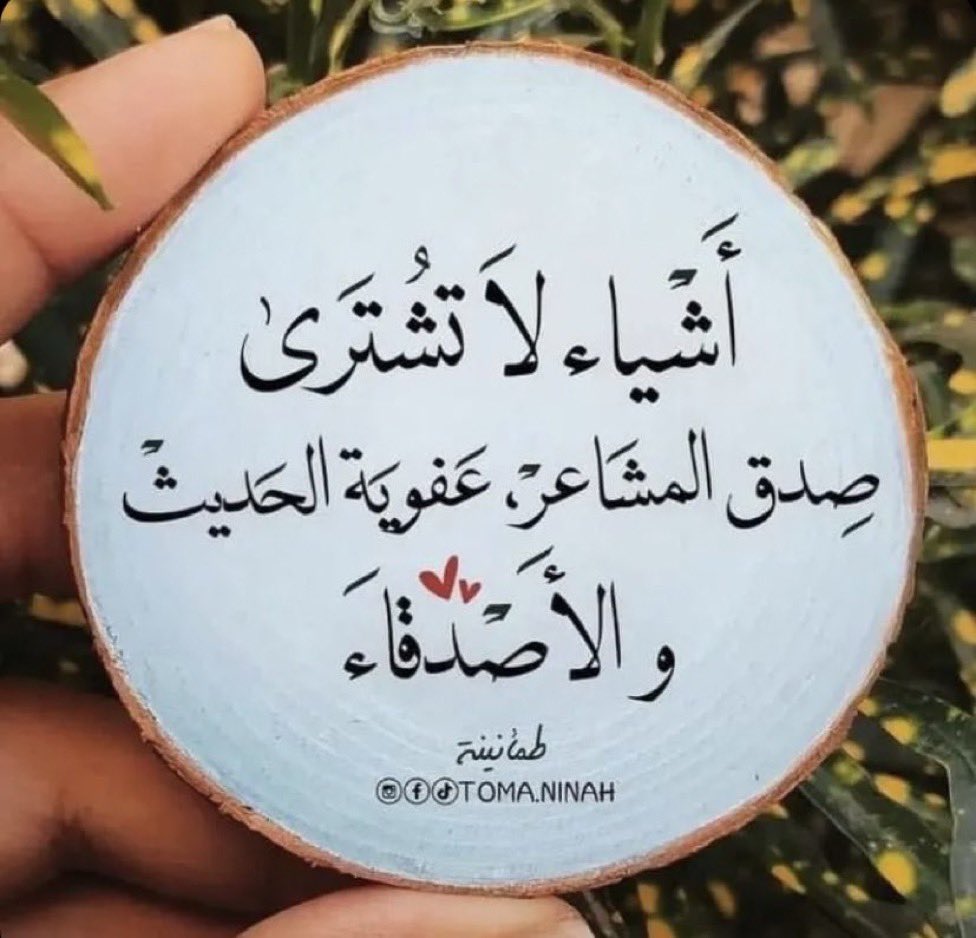 أَشْياء لاَ تُشتَرىٰ
صِدق المشَاعرْ، عَفويَة الحَديثْ
و الأَصْدقاءَ
طمأنينة
TOMA.NINAH